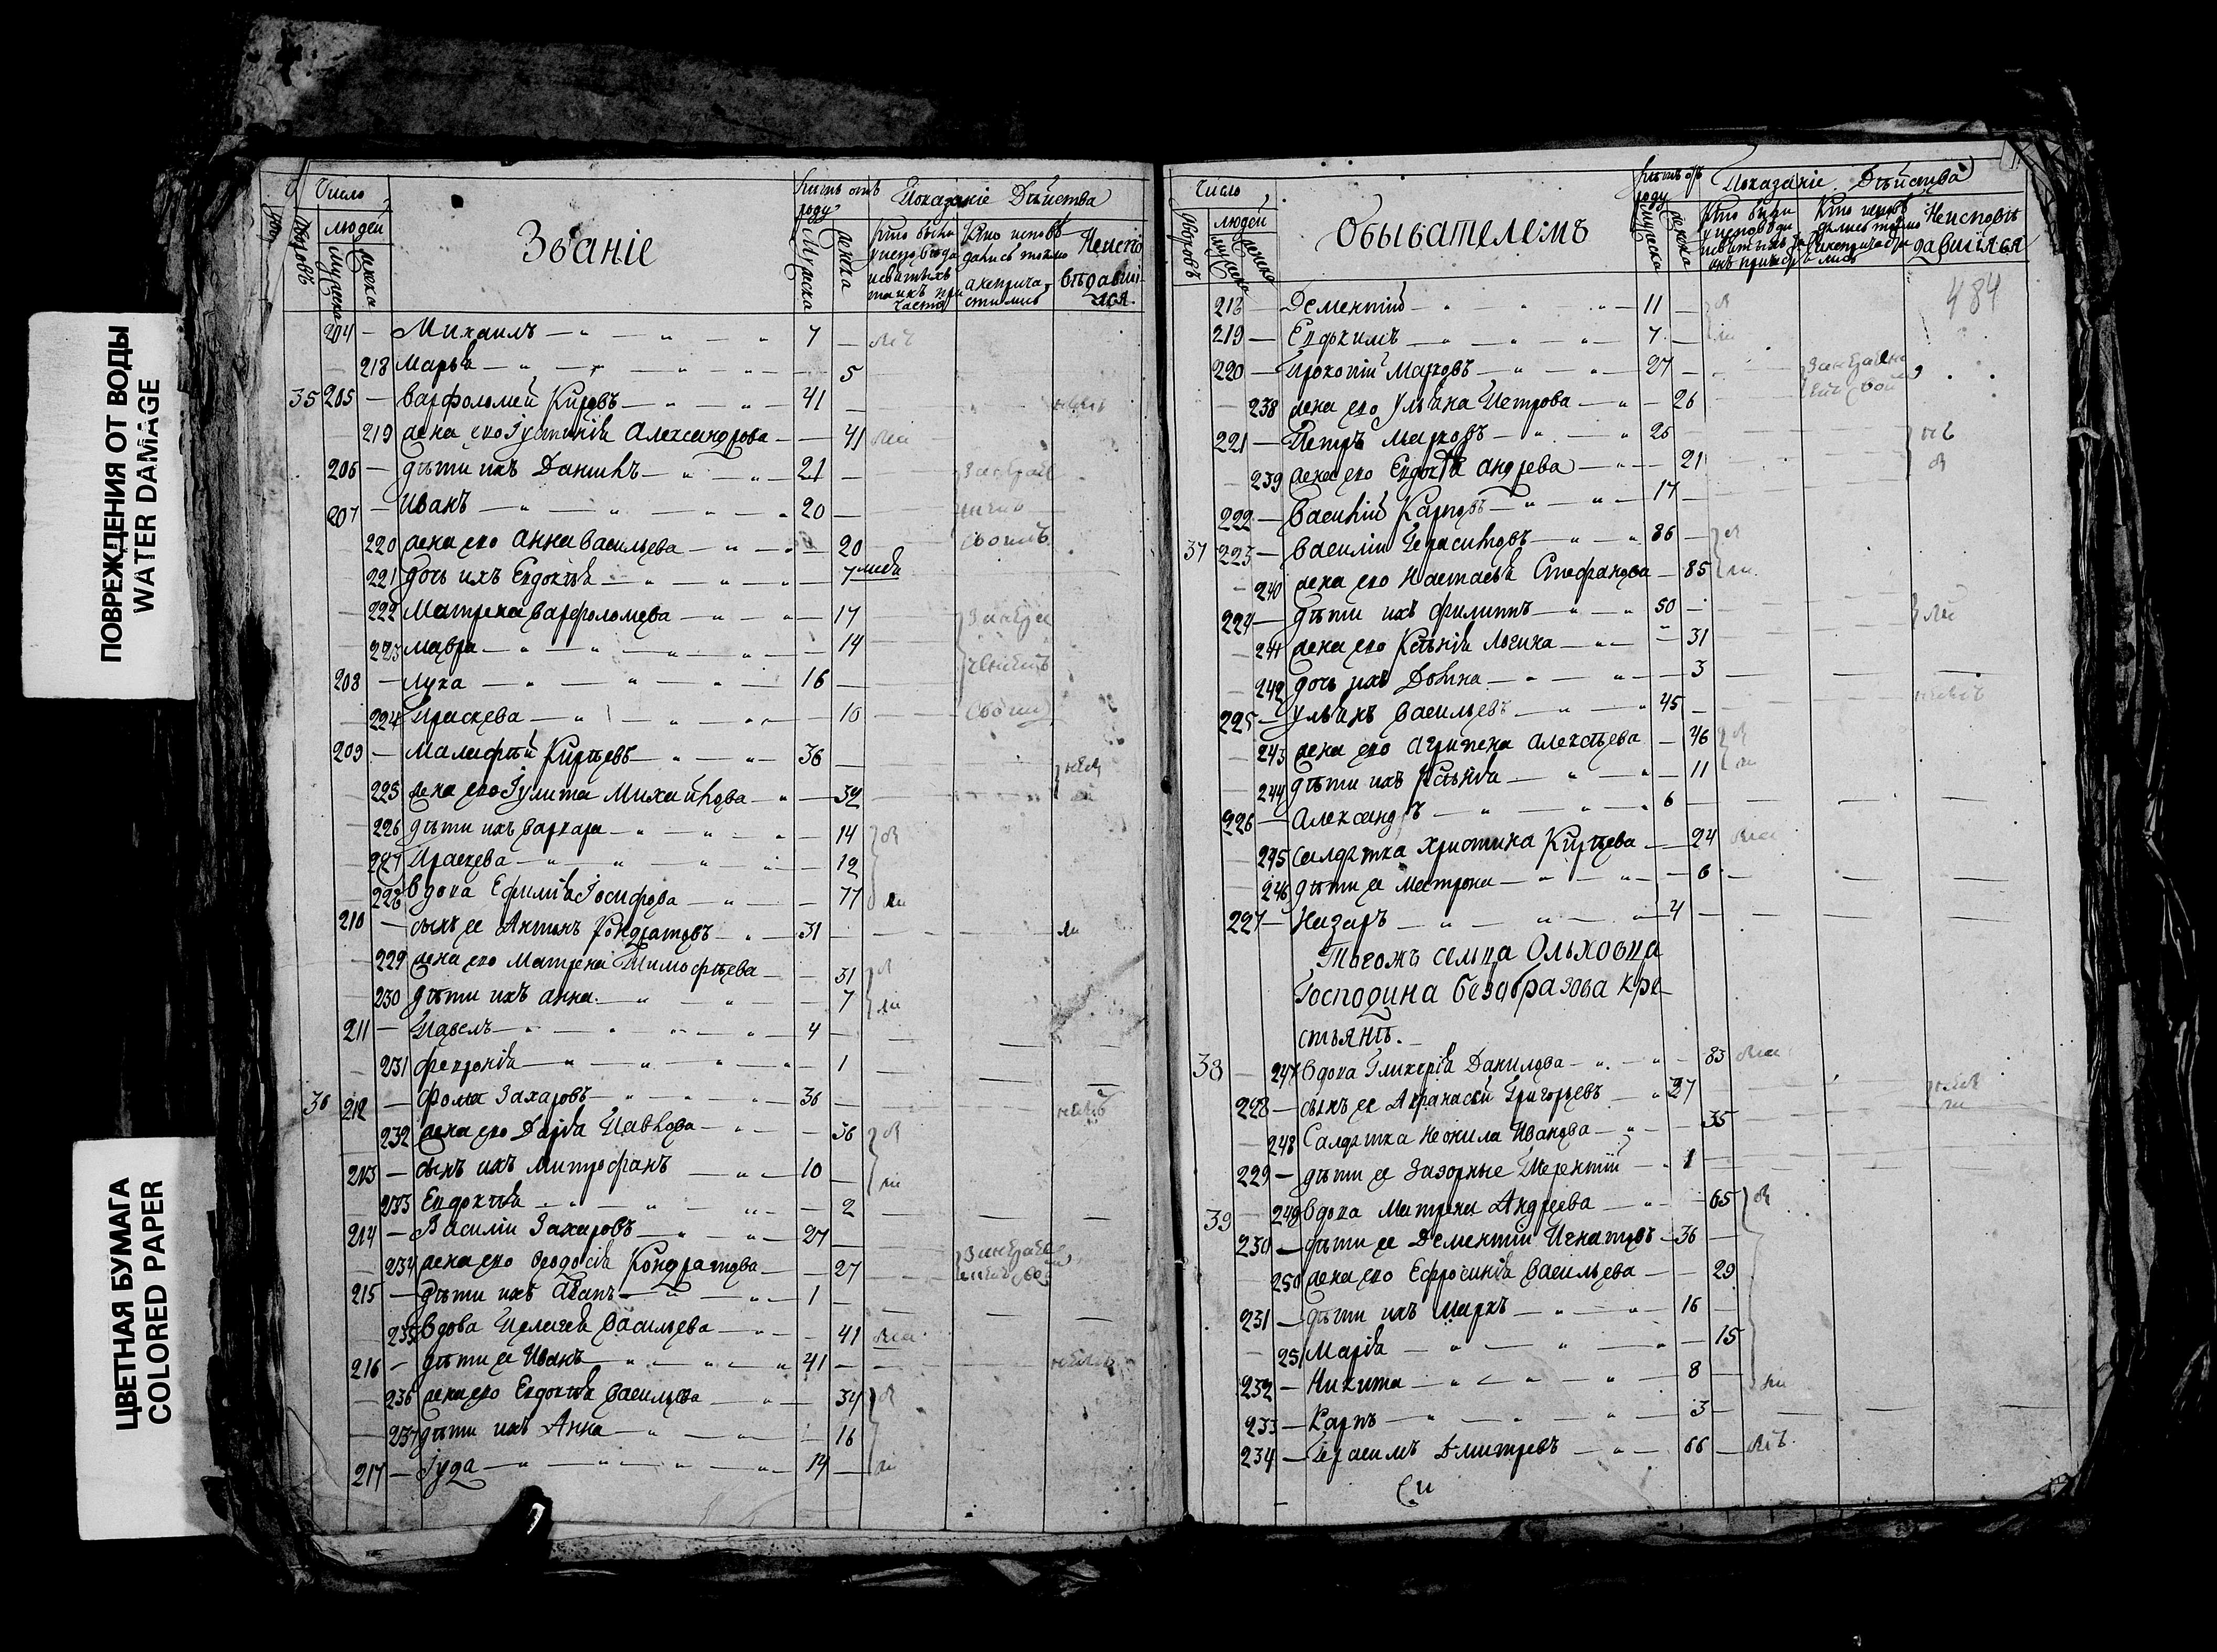 ПОВРЕЖДЕНИЯ ОТ ВОДЫ
WATER DAMAGE
ЦВЕТНАЯ БУМАГА
COLORED PAPER
Число
людей
дворовъ
мужеска
женска
Званіе
Лѣтъ отъ роду
Мужеска
женска
Показаніе Дѣйства
Кто были у исповѣди и святыхъ таинъ причастія
Кто исповѣдались токмо а непричастились
Неисповѣдавшіяся
204 — Михаилъ 7
218 Марья 5
35 205 — Варфоломей Кировъ 41
219 жена его Іустинія Александрова 41
206 — дѣти ихъ Даниилъ 21
207 — Иванъ 20
220 жена его Анна Васильева 20
221 дочь ихъ Евдокѣя 7
222 Матрена Варфоломева 17
223 Мавра 14
208 — Лука 16
224 Праскева 10
209 — Малафѣй Кирѣевъ 36
225 жена его Іулита Михайлова 34
226 дѣти ихъ Варвара 14
227 Праскева 12
228 вдова Ефимія Іосифова 77
210 — сынъ ее Антонъ Кондратовъ 31
229 жена его Матрена Тимофѣева 31
230 дѣти ихъ Анна 7
211 — Павелъ 4
231 Феврония 1
36 212 — Фома Захаровъ 36
232 жена его Дарья Павлова 36
213 — сынъ ихъ Митрофанъ 10
233 Евдокѣя 2
214 — Василій Захаровъ 27
234 жена его Феодосія Кондратова 27
215 — дѣти ихъ 1
235 вдова Пелагея Васильева 41
216 — дѣти ее Иванъ 41
236 жена его Евдокѣя Васильева 34
237 дѣти ихъ Анна 16
217 — Іуда 14
Число
людей
дворовъ
мужеска
женска
Обывателемъ
Лѣтъ отъ роду
мужеска
женска
Показаніе Дѣйства
Кто были у исповѣди и святыхъ таинъ причастія
Кто исповѣдались токмо а непричастились
Неисповѣдавшіяся
484
218 — Дементій 11
219 — Евдокимъ 7
220 — Прокопій Марковъ 27
238 жена его Ульяна Петрова 26
221 — Петръ Марковъ 25
239 жена его Евдокѣя Андрева 21
222 — Василій Карповъ 17
37 223 — Василій Герасимовъ 86
240 жена его Настасья Стефанова 85
224 — дѣти ихъ Филиппъ 50
241 жена его Ксѣнія Логина 31
242 дочь ихъ Домна 3
225 — Ульянъ Васильевъ 45
243 жена его Агрипена Алексѣева 46
244 дѣти ихъ Ксѣнія 11
226 — Александръ 6
245 салдатка Христина Кирѣева 24
246 дѣти ее Матрона 6
227 — Назаръ 4
Тогожъ сельца Ольховца
Господина безобразова кре-
стьянъ.
38 247 вдова Гликерія Данилова 83
228 — сынъ ее Афанасей Григорьевъ 27
248 Салдатка Неонила Иванова 35
229 — дѣти ее Зазорные Терентій 1
39 249 вдова Матрена Андреева 65
230 — дѣти ее Дементій Игнатовъ 36
250 жена его Ефросинія Васильева 29
231 — дѣти ихъ Маркъ 16
251 Марія 15
232 — Никита 8
233 — Карпъ 3
234 — Герасимъ Дмитревъ 66